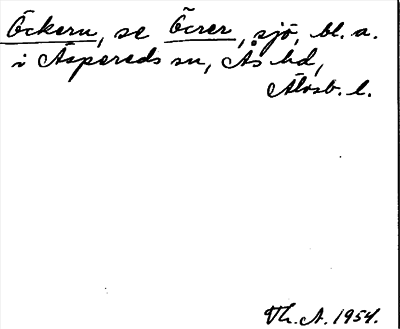 Öckern, se Öcrer, sjö, bl. a.
i Aspereds sn, Ås hd,
Älvsb. l.
Th. A. 1954.